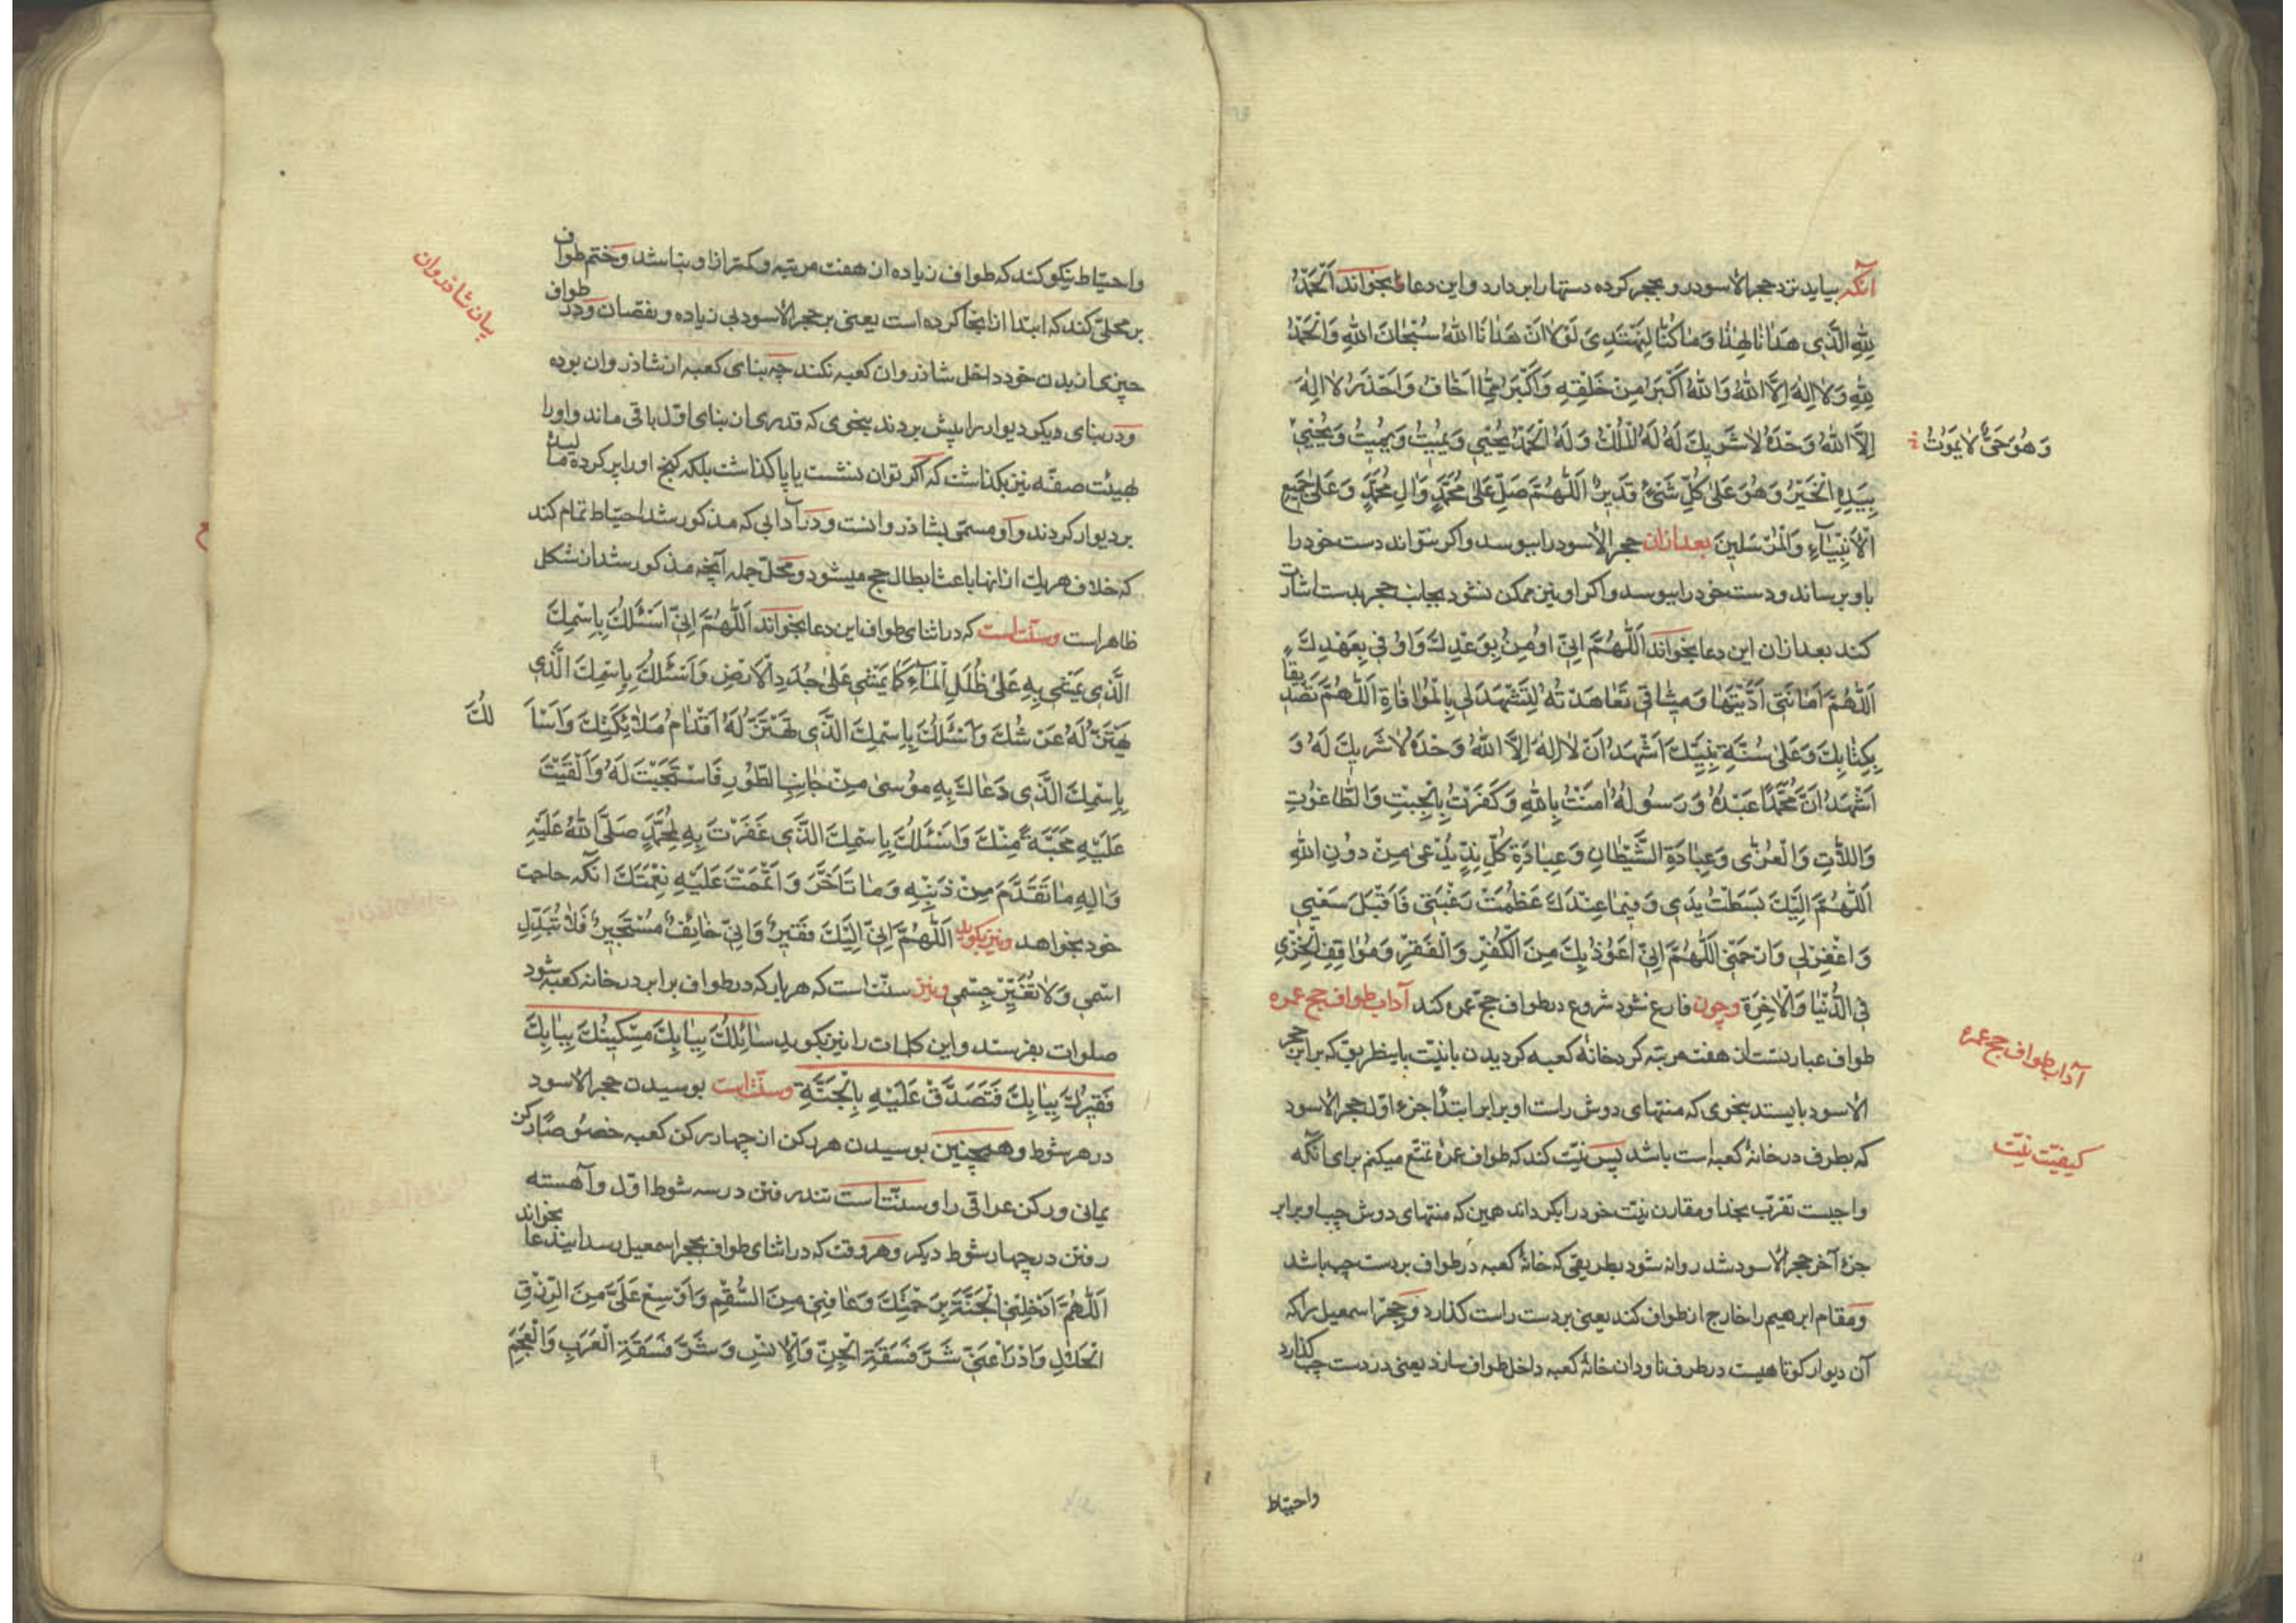 آنکه بیاید نزد حجر الاسود رو بحجر کرده دستها را بر دارد و این دعا بخواند اَلْحَمْدُ
لِلّٰهِ الَّذِی هَدٰانٰا لِهٰذٰا وَمٰا کُنّٰا لِنَهْتَدِیَ لَوْلٰا اَنْ هَدٰانَا اللّٰهُ سُبْحٰانَ اللّٰهِ وَالْحَمْدُ
لِلّٰهِ وَلٰا اِلٰهَ اِلَّا اللّٰهُ وَاللّٰهُ اَکْبَرُ مِنْ خَلْقِهِ وَاَکْبَرُ مِمّٰا اَخٰافُ وَاَحْذَرُ لٰا اِلٰهَ
اِلَّا اللّٰهُ وَحْدَهُ لٰا شَرِیكَ لَهُ لَهُ الْمُلْكُ وَلَهُ الْحَمْدُ یُحْیِی وَیُمِیتُ وَیُمِیتُ وَیُحْیِی
وَهُوَ حَیٌّ لٰا یَمُوتُ
بِیَدِهِ الْخَیْرُ وَهُوَ عَلٰی کُلِّ شَیْءٍ قَدِیرٌ اَللّٰهُمَّ صَلِّ عَلٰی مُحَمَّدٍ وَاٰلِ مُحَمَّدٍ وَعَلٰی جَمِیعِ
الْاَنْبِیٰآءِ وَالْمُرْسَلِینَ بعد از ان حجر الاسود را ببوسد و اکر نتواند دست خود را
باو برساند و دست خود را ببوسد و اکر او نیز ممکن نشود بجانب حجر بدست اشارت
کند بعد از ان این دعا بخواند اَللّٰهُمَّ اِنِّی اُومِنُ بِوَعْدِكَ وَاُوفِی بِعَهْدِكَ
اَللّٰهُمَّ اَمٰانَتِی اَدَّیْتُهٰا وَمِیثٰاقِی تَعٰاهَدْتُهُ لِتَشْهَدَ لِی بِالْمُوٰافٰاةِ اَللّٰهُمَّ تَصْدِیقًا
بِکِتٰابِكَ وَعَلٰی سُنَّةِ نَبِیِّكَ اَشْهَدُ اَنْ لٰا اِلٰهَ اِلَّا اللّٰهُ وَحْدَهُ لٰا شَرِیكَ لَهُ وَ
اَشْهَدُ اَنَّ مُحَمَّدًا عَبْدُهُ وَرَسُولُهُ اٰمَنْتُ بِاللّٰهِ وَکَفَرْتُ بِالْجِبْتِ وَالطّٰاغُوتِ
وَاللّٰاتِ وَالْعُزّٰی وَعِبٰادَةِ الشَّیْطٰانِ وَعِبٰادَةِ کُلِّ نِدٍّ یُدْعیٰ مِنْ دُونِ اللّٰهِ
اَللّٰهُمَّ اِلَیْكَ بَسَطْتُ یَدِی وَفِیمٰا عِنْدَكَ عَظُمَتْ رَغْبَتِی فَاقْبَلْ سَعْیِی
وَاغْفِرْ لِی وَارْحَمْنِی اَللّٰهُمَّ اِنِّی اَعُوذُ بِكَ مِنَ الْکُفْرِ وَالْفَقْرِ وَمَوٰاقِفِ الْخِزْیِ
فِی الدُّنْیٰا وَالْاٰخِرَةِ وچون فارغ شود شروع در طواف حج عمره کند آداب طواف حج عمره
آداب طواف حج عمره
طواف عبارتست از هفت مرتبه کرد خانه کعبه کردیدن با نیّت باینطریق که برابر حجر
الاسود بایستد بنحوی که منتهای دوش راست او برابر ابتدا جزء اول حجر الاسود
که بطرف در خانهٔ کعبه است باشد پس نیّت کند که طواف عمرهٔ تمتّع میکنم برای آنکه
کیفیّت نیّت
واجبست تقرّب بخدا و مقارن نیّت خود را بکرداند همین که منتهای دوش چپ او برابر
جزء آخر حجر الاسود شد روانه شود بطریقی که خانهٔ کعبه در طواف بر دست چپ باشد
ومقام ابرهیم را خارج از طواف کند یعنی بر دست راست کذارد وحجر اسمعیل را که
آن دیوار کوتاهیست در طرف ناودان خانهٔ کعبه داخل طواف سازد یعنی در دست چپ کذارد
واحتیاط
واحتیاط نیکو کند که طواف زیاده از هفت مرتبه و کمتر از او نباشد وختم طواف
بیان شاذروان
بر محلّی کند که ابتدا از انجا کرده است یعنی بر حجر الاسود بی زیاده و نقصان ودر طواف
چیزی از بدن خود داخل شاذروان کعبه نکند چه بنای کعبه از شاذروان بوده
ودر بنای دیکر دیوار را پیش بردند بنحوی که قدری از بنای اول باقی ماند واو را
بهیئت صفّه نیز نکذاشت که اکر توان نشست یا پا کذاشت بلکه کنج او را بر کرده مالیده
بر دیوار کردند واو مسمّی بشاذروانست ودر آدابی که مذکور شد احتیاط تمام کند
که خلاف هر یك از انها باعث ابطال حج میشود ومحلّ جمله آنچه مذکور شد از شکل
ظاهر است وسنّت است که در اثنای طواف این دعا بخواند اَللّٰهُمَّ اِنِّی اَسْئَلُكَ بِاسْمِكَ
الَّذِی یُمْشٰی بِهِ عَلٰی ظُلَلِ الْمٰآءِ کَمٰا یُمْشٰی عَلٰی جُدَدِ الْاَرْضِ وَاَسْئَلُكَ بِاسْمِكَ الَّذِی
یَهْتَزُّ لَهُ عَرْشُكَ وَاَسْئَلُكَ بِاسْمِكَ الَّذِی تَهْتَزُّ لَهُ اَقْدٰامُ مَلٰائِکَتِكَ وَاَسْاَلُكَ
بِاسْمِكَ الَّذِی دَعٰاكَ بِهِ مُوسٰی مِنْ جٰانِبِ الطُّورِ فَاسْتَجَبْتَ لَهُ وَاَلْقَیْتَ
عَلَیْهِ مَحَبَّةً مِنْكَ وَاَسْئَلُكَ بِاسْمِكَ الَّذِی غَفَرْتَ بِهِ لِمُحَمَّدٍ صَلَّی اللّٰهُ عَلَیْهِ
وَاٰلِهِ مٰا تَقَدَّمَ مِنْ ذَنْبِهِ وَمٰا تَاَخَّرَ وَاَتْمَمْتَ عَلَیْهِ نِعْمَتَكَ انکه حاجت
خود بخواهد ونیز بکوید اَللّٰهُمَّ اِنِّی اِلَیْكَ فَقِیرٌ وَاِنِّی خٰائِفٌ مُسْتَجِیرٌ فَلٰا تُبَدِّلِ
اسْمِی وَلٰا تُغَیِّرْ جِسْمِی ونیز سنّت است که هر بار که در طواف برابر در خانه کعبه شود
صلوات بفرستد واین کلمات را نیز بکوید سٰائِلُكَ بِبٰابِكَ مِسْکِینُكَ بِبٰابِكَ
فَقِیرُكَ بِبٰابِكَ فَتَصَدَّقْ عَلَیْهِ بِالْجَنَّةِ وسنّت است بوسیدن حجر الاسود
در هر شوط وهمچنین بوسیدن هر رکن از چهار رکن کعبه خصوصًا رکن
یمانی ورکن عراقی را وسنّت است تند رفتن در سه شوط اول وآهسته
رفتن در چهار شوط دیکر وهر وقت که در اثنای طواف بحجر اسمعیل رسد ایندعا بخواند
اَللّٰهُمَّ اَدْخِلْنِی الْجَنَّةَ بِرَحْمَتِكَ وَعٰافِنِی مِنَ السُّقْمِ وَاَوْسِعْ عَلَیَّ مِنَ الرِّزْقِ
الْحَلٰالِ وَادْرَاْ عَنِّی شَرَّ فَسَقَةِ الْجِنِّ وَالْاِنْسِ وَشَرَّ فَسَقَةِ الْعَرَبِ وَالْعَجَمِ